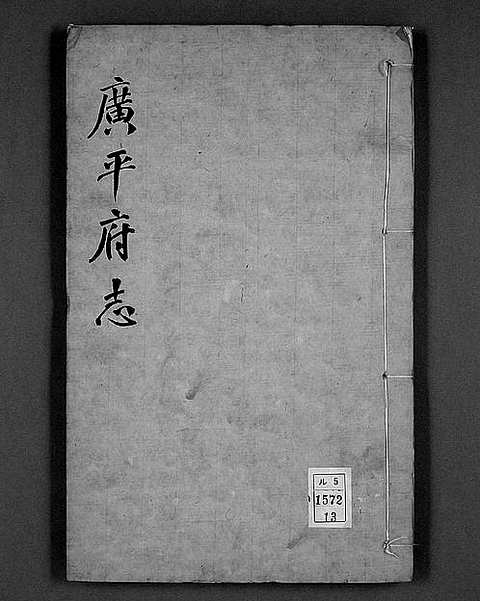 廣平府志
ル 5
1572
13